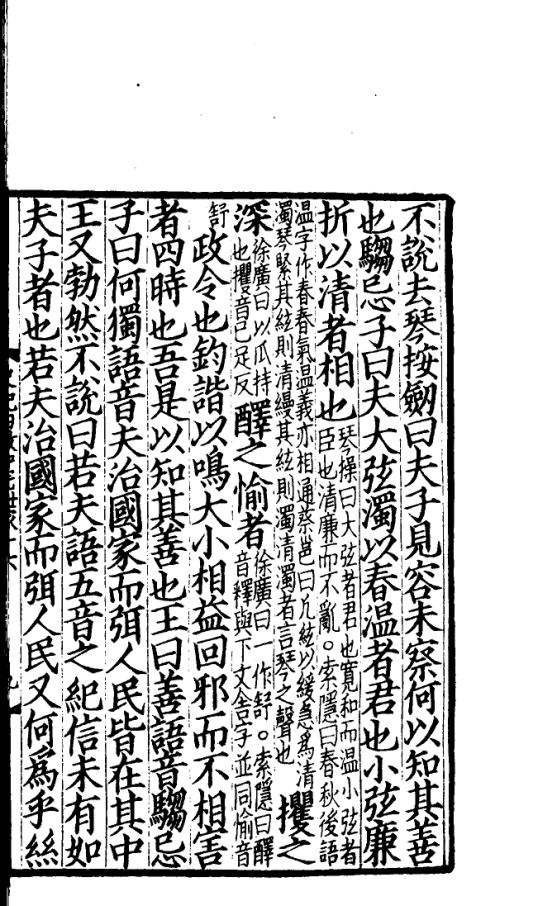 不說去琴按劒曰夫子見容未察何以知其善
也騶忌子曰夫大弦濁以春温者君也小弦廉
折以清者相也
琴操曰大弦者君也寛和而温小弦者
臣也清廉而不亂。索隱曰春秋後語
温字作春春氣温義亦相通蔡邕曰凡絃以緩急爲清
濁琴緊其絃則清縵其絃則濁清濁者言琴之聲也
攫之
深
徐廣曰以瓜持
也攫音己足反
醳之愉者
徐廣曰一作舒。索隱曰醳
音釋與下文舍字並同愉音
舒
政令也鈞諧以鳴大小相益回邪而不相害
者四時也吾是以知其善也王曰善語音騶忌
子曰何獨語音夫治國家而弭人民皆在其中
王又勃然不說曰若夫語五音之紀信未有如
夫子者也若夫治國家而弭人民又何爲乎絲